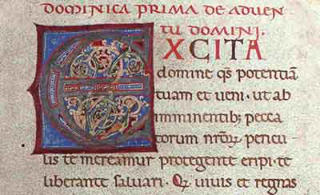 DOMINICA PRIMA DE ADVEN
TU DOMINI.
EXCITA
domine qs potentiā
tuam et ueni. ut ab
imminentibus pecca
torum nrōꝝ pericu
lis te mereamur protegente eripi. te
liberante saluari. Qui uiuis et regnas